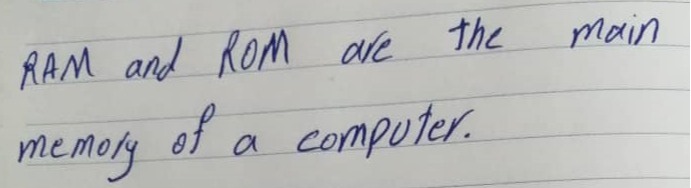 RAM and ROM are the main
memory of a computer.